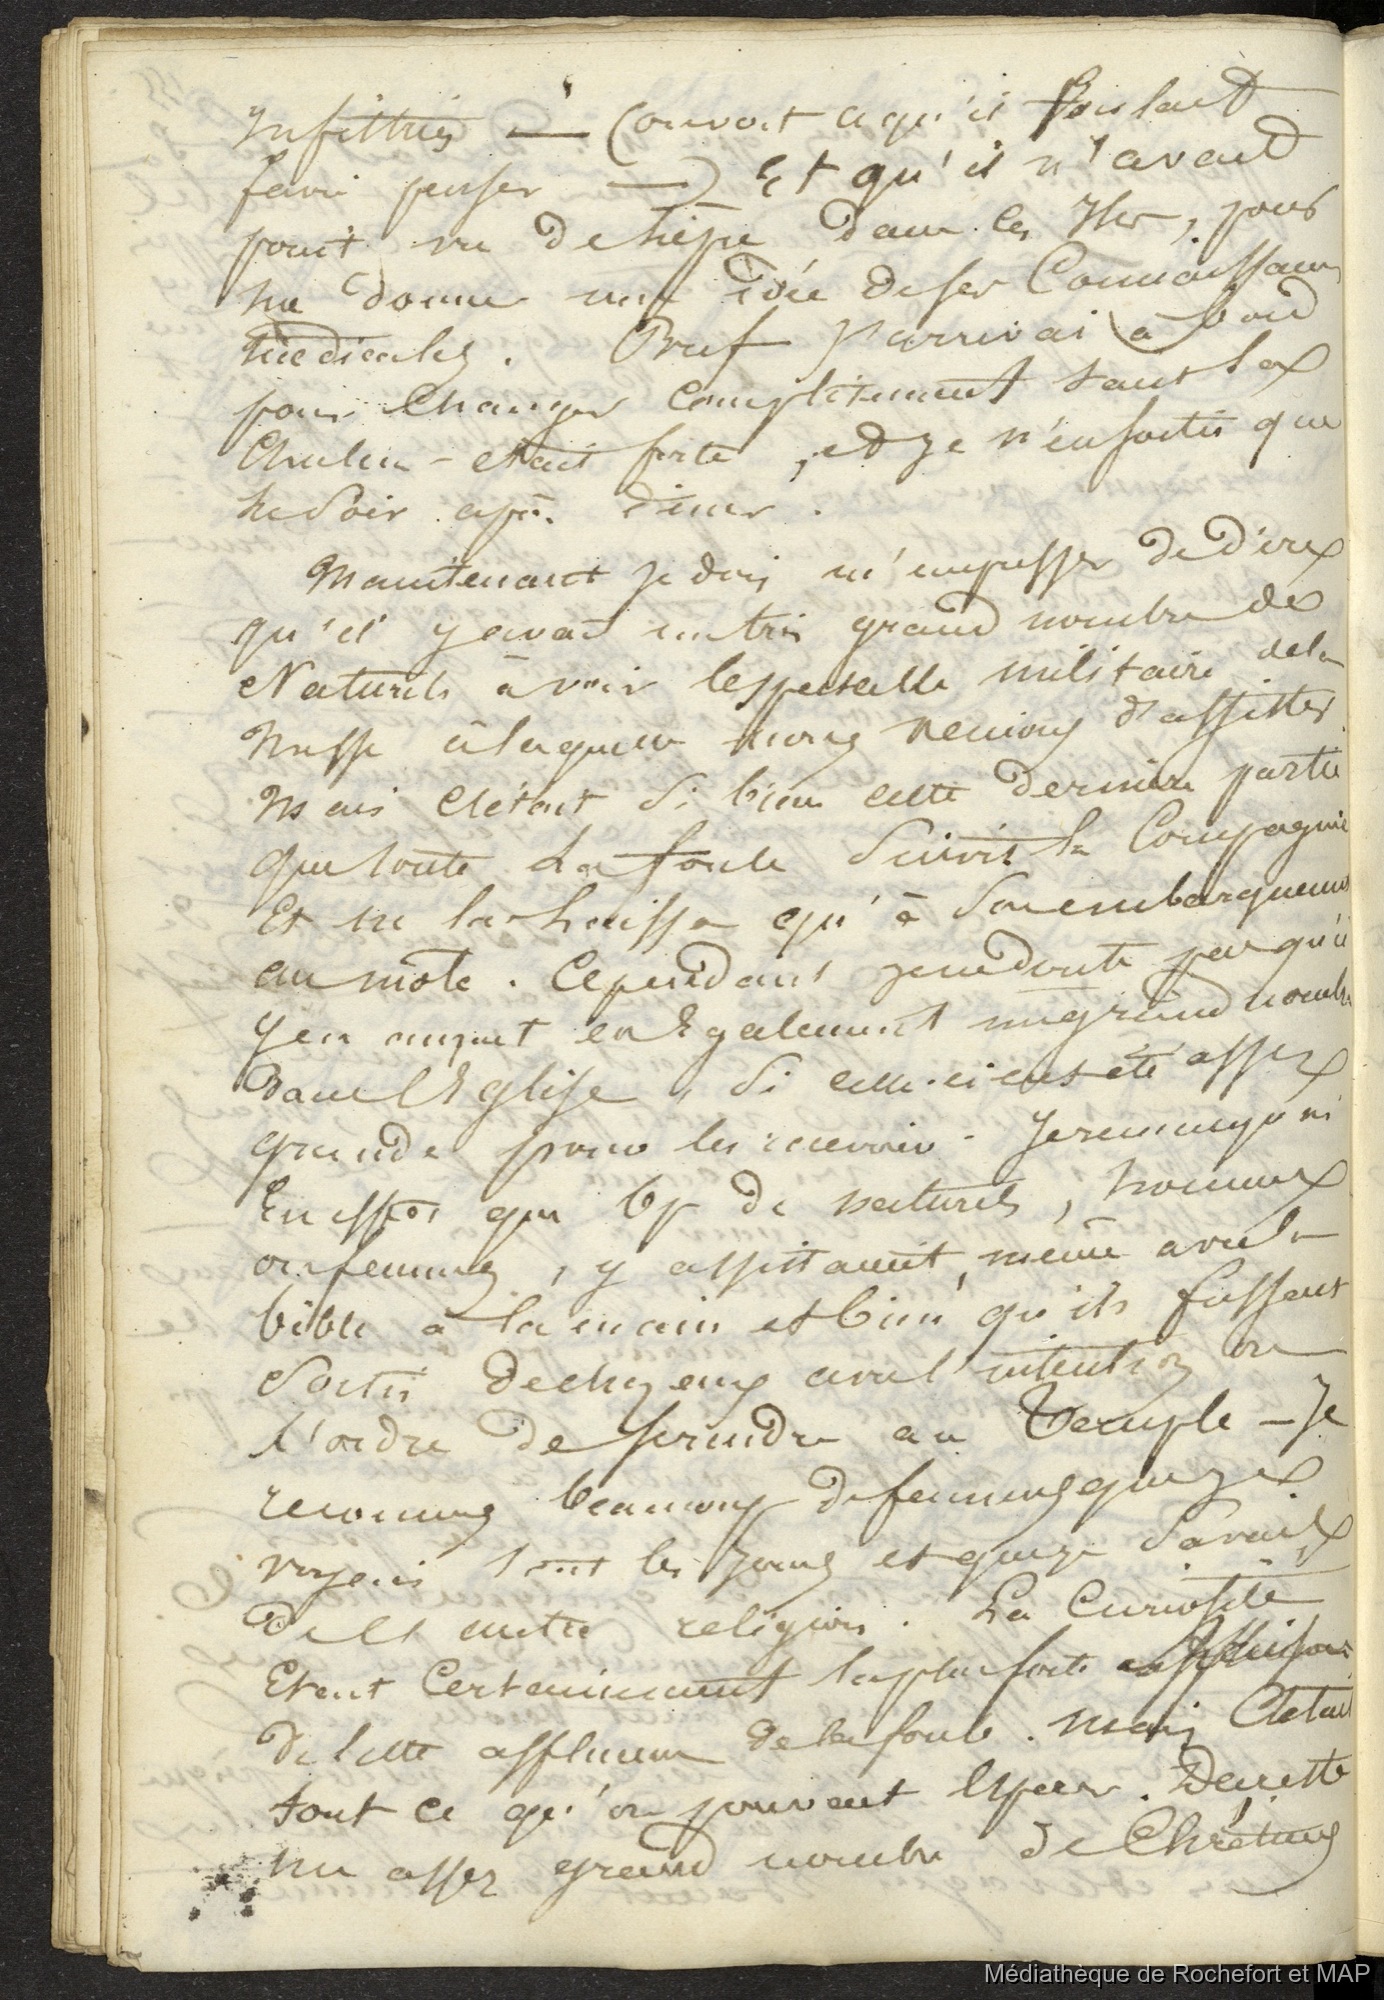 Infiltrés — (c'envoit a qu'il voulait
faire penser —) Et qu'il n'avait
point vu de lièpre dans les Iles, pour
me donner une idée de ses Connaissances
médicales. Bref J'arrivai à bord
pour changer complètement tant la
Chaleur était forte, et je n'en sortis que
le Soir apr. diner.
Maintenant je dois m'empresser de dire
qu'il y avait un très grand nombre de
Naturels à voir le spectacle militaire de la
Messe à laquelle nous venions d'assister.
Mais c'était si bien cette dernière partie
que toute la foule suivit la Compagnie
Et ne la laissa qu'à son embarquement
au môle. Cependant je ne doute pas qu'il
y en auroit eu Egalement un grand nombre
dans l'Eglise, si celle-ci eut été assez
grande pour les recevoir. Je remarquai
En effet que bp de naturels, hommes
ou femmes, y assistaient, même avec la
bible à la main et bien qu'ils fussent
Sortis de chez eux avec l'intention ou
l'ordre de se rendre au Temple — Je
reconnus beaucoup de femmes que je
voyais tous les jours et que je savais
de l'autre religion. La Curiosité
Etant Certainement la plus forte
de cette affluence de la foule. Mais C'était
tout ce qu'on pouvait espérer. De cette
un assez grand nombre de Chrétiens
Médiathèque de Rochefort et MAP